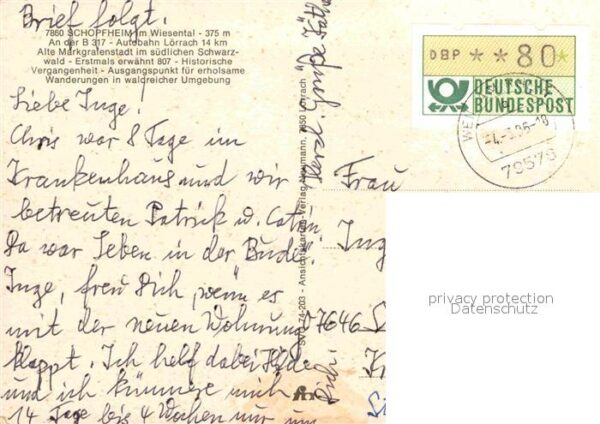 Brief folgt!
7860 SCHOPFHEIM im Wiesental - 375 m
An der B 317 - Autobahn Lörrach 14 km
Alte Markgrafenstadt im südlichen Schwarz-
wald - Erstmals erwähnt 807 - Historische
Vergangenheit - Ausgangspunkt für erholsame
Wanderungen in waldreicher Umgebung
Liebe Inge!
Chris war 8 Tage im
Krankenhaus und wir
betreuten Patrick u.
Da war Leben in der Bude.
Inge, freu Dich, wenn es
mit der neuen Wohnung
klappt. Ich helf dabei
und ich kümmere mich
14 Tage bis 4 Wochen nur um
Herzl. Grüße
Dich.
74-203 - Ansichtskarten-Verlag 7850 Lörrach
DBP **80*
DEUTSCHE
BUNDESPOST
79576
Frau
Inge
7646
privacy protection
Datenschutz